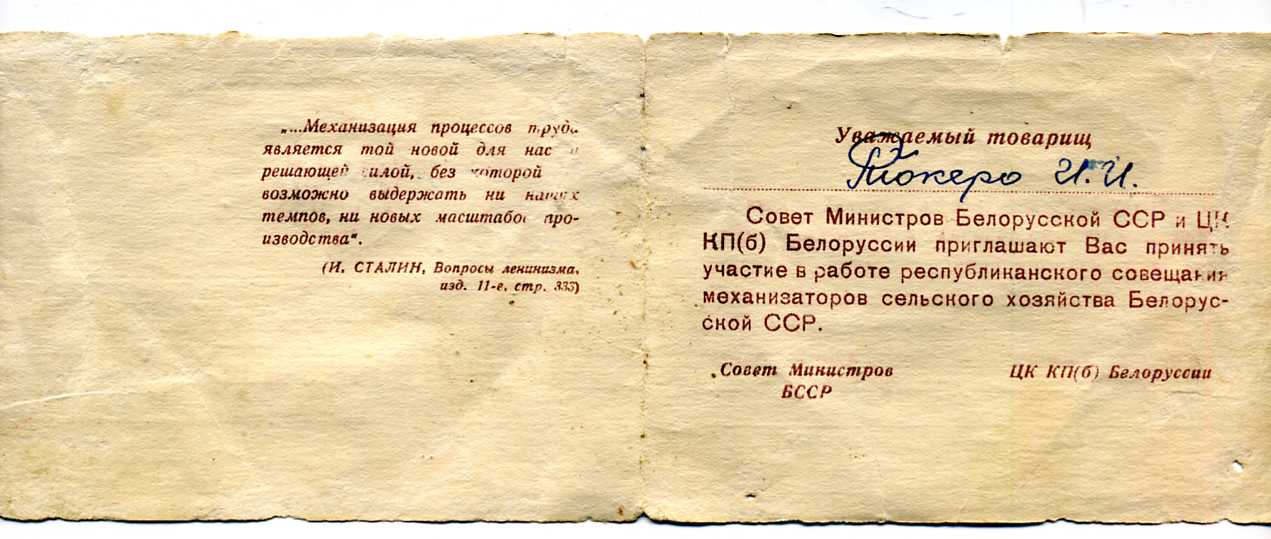 „...Механизация процессов труда
является той новой для нас и
решающей силой, без которой
возможно выдержать ни наших
темпов, ни новых масштабов про-
изводства“.
(И. СТАЛИН, Вопросы ленинизма,
изд. 11-е, стр. 333)
Уважаемый товарищ
И. И.
Совет Министров Белорусской ССР и ЦК
КП(б) Белоруссии приглашают Вас принять
участие в работе республиканского совещания
механизаторов сельского хозяйства Белорус-
ской ССР.
Совет Министров
БССР
ЦК КП(б) Белоруссии